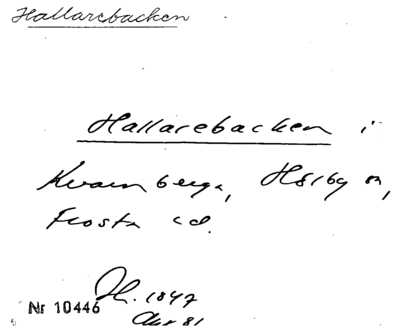 Hallarebacken
Hallarebacken i
Kvarnberga, Hörby sn,
Frosta hd.
1847
Nr 10446
81